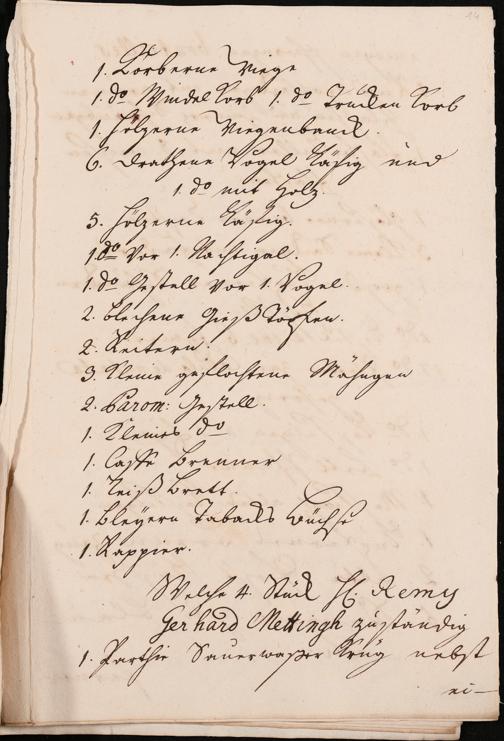 14
1. Körberne Wiege
1. do Windel Korb 1. do Trucken Korb
1. höltzerne Wiegenbanck.
6. Drathene Vogel Käfig und
1. do mit Holz.
5. höltzerne Käfig.
1. do vor 1. Nachtigal.
1. do Gestell vor 1. Vogel.
2. blechene Gieß
2. Reitern.
3. kleine geflochtene Mähngen
2. Barom: Gestell.
1. kleines do
1. Caffe Brenner
1. Reiß Brett.
1. bleyern Tabacks Büchse
1. Rappier.
Welche 4. Stück H. Remy
Gerhard Mettingh zuständig
1. Parthie Sauerwaßer Krüg nebst
ei-